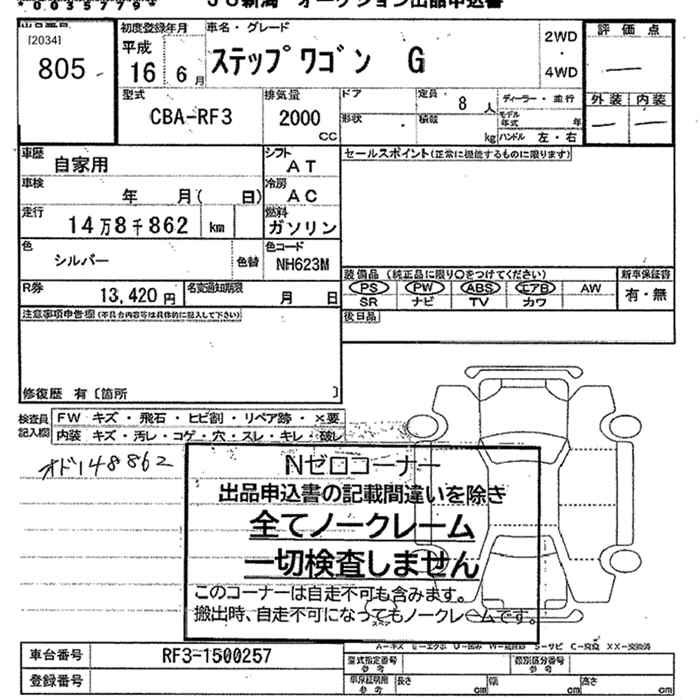 *003577794
JU新潟 オークション出品申込書
出品番号
[2034]
805
初度登録年月
平成
16年6月
車名・グレード
ステップワゴン G
2WD
・
4WD
評価点
—
外装 内装
— —
型式
CBA-RF3
排気量
2000
CC
ドア
形状
定員 8 人
積載 kg
ディーラー・並行
モデル年式 年
ハンドル 左・右
車歴
自家用
シフト
AT
車検
年 月( 日)
冷房
AC
走行
14万8千862 km
燃料
ガソリン
色
シルバー
色替
色コード
NH623M
R券
13,420 円
名変通知期限
月 日
セールスポイント(正常に機能するものに限ります)
装備品 (純正品に限り○をつけてください)
PS PW ABS エアB AW
SR ナビ TV カワ
新車保証書
有・無
後日品
注意事項申告欄(不具合内容等は具体的に記入して下さい)
修復歴 有〔箇所 〕
検査員記入欄
FW キズ・飛石・ヒビ割・リペア跡・×要
内装 キズ・汚レ・コゲ・穴・スレ・キレ・破レ
オド148862
Nゼロコーナー
出品申込書の記載間違いを除き
全てノークレーム
一切検査しません
このコーナーは自走不可も含みます。
搬出時、自走不可になってもノークレームです。
車台番号
RF3-1500257
登録番号
型式指定番号
参考
類別区分番号
参考
車庫証明用
参考
長さ cm
幅 cm
高さ cm